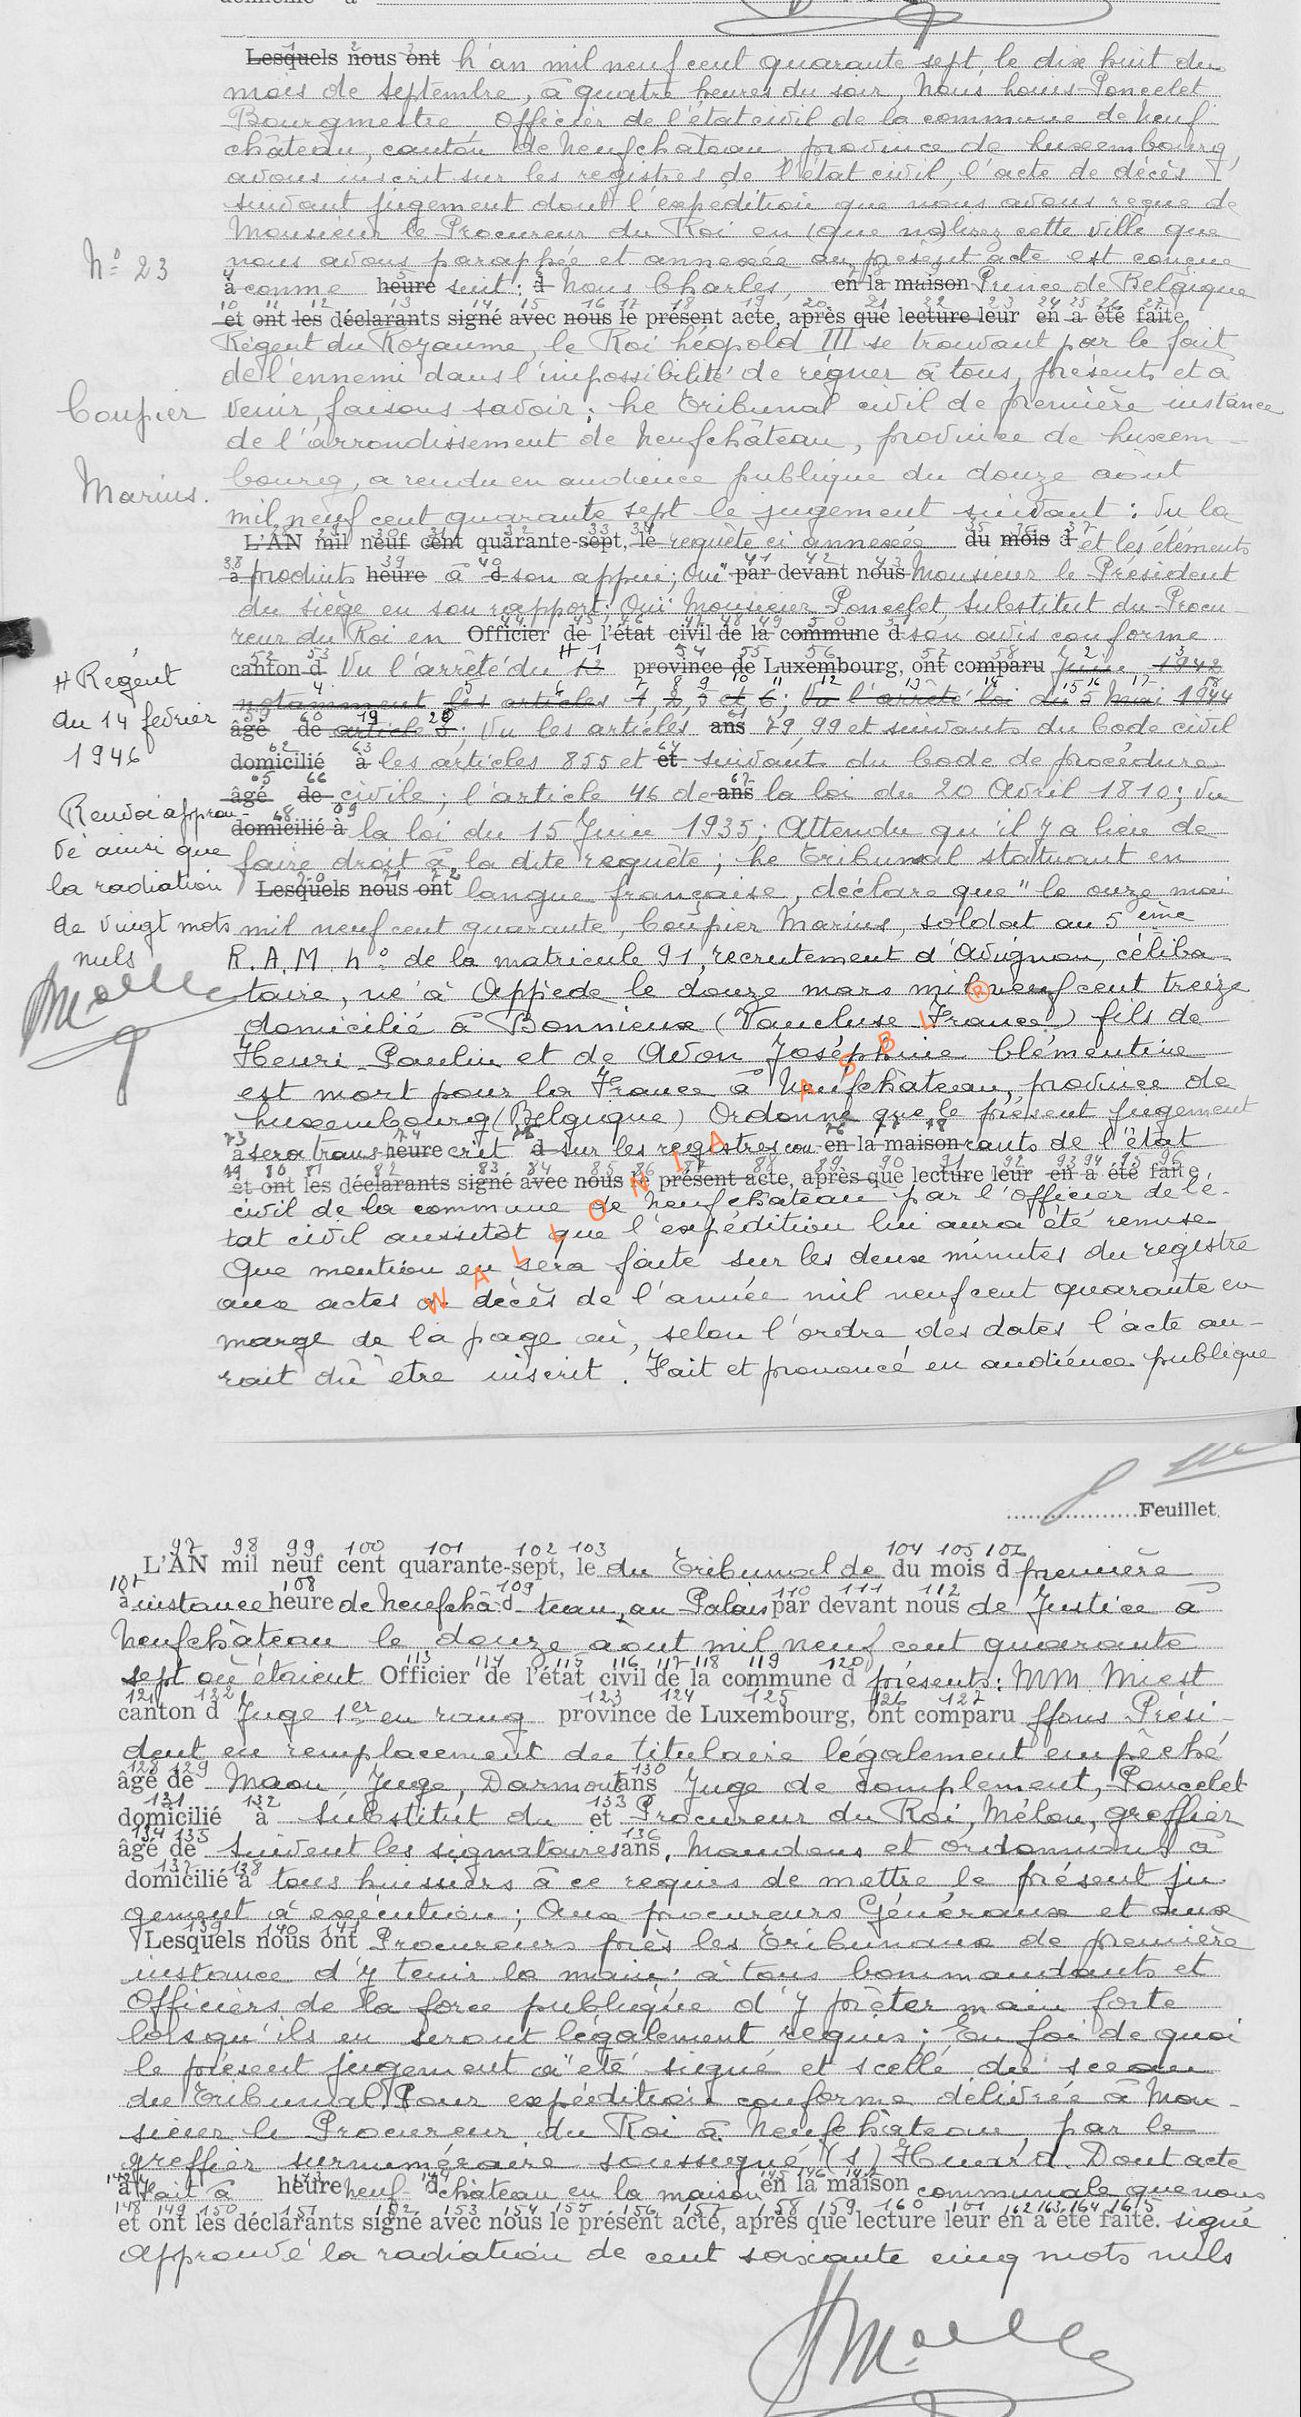 Lesquels nous ont L'an mil neuf cent quarante sept, le dix huit du
mois de Septembre, à quatre heures du soir, Nous Louis Poncelet
Bourgmestre Officier de l'état civil de la commune de Neuf
château, canton de Neufchâteau province de Luxembourg,
avons inscrit sur les registres de l'état civil, l'acte de décès
suivant jugement dont l'expédition que nous avons reçue de
Monsieur le Procureur du Roi en (que ns) lirez cette ville que
nous avons paraphée et annexée au présent acte est conçue
N° 23
à comme heure suit : d Nous Charles, en la maison Prince de Belgique
et ont les déclarants signé avec nous le présent acte, après que lecture leur en a été faite.
Régent du Royaume, le Roi Léopold III se trouvant par le fait
de l'ennemi dans l'impossibilité de régner à tous, présents et à
Coupier
venir, faisons savoir : Le Tribunal civil de première instance
de l'arrondissement de Neufchâteau, province de Luxem-
Marius.
bourg, a rendu en audience publique du douze août
mil neuf cent quarante sept le jugement suivant : Vu la
L'AN mil neuf cent quarante-sept, le requête ci annexée du mois d et les éléments
à produits heure à d son appui ; Ouï par devant nous Monsieur le Président
du siège en son rapport ; Ouï Monsieur Poncelet, Substitut du Procu-
reur du Roi en Officier de l'état civil de la commune d son avis conforme
canton d Vu l'arrêté du # 12 province de Luxembourg, ont comparu Juin 1942
notamment les articles 1, 2, 3 et 6 ; Vu l'arrêté loi du 5 Mai 1944
âgé de article 3 ; Vu les articles ans 79, 99 et suivants du Code civil
domicilié à les articles 855 et et suivants du Code de procédure
âgé de civile ; l'article 46 de ans la loi du 20 Avril 1810 ; Vu
domicilié à la loi du 15 Juin 1935 ; Attendu qu'il y a lieu de
faire droit à la dite requête ; Le Tribunal statuant en
Lesquels nous ont langue française, déclare que "le onze mai
mil neuf cent quarante, Coupier Marius, soldat au 5ème
R.A.M. n° de la matricule 91, recrutement d'Avignon, céliba-
taire, né à Oppède le douze mars mil neuf cent treize
domicilié à Bonnieux (Vaucluse France) fils de
Henri Paulin et de Avon Joséphine Clémentine
est mort pour la France à Neufchâteau, province de
Luxembourg (Belgique) Ordonne que le présent jugement
à sera trans heure crit d sur les registres cou en la maison rants de l'état
et ont les déclarants signé avec nous le présent acte, après que lecture leur en a été faite
civil de la commune de Neufchâteau par l'Officier de l'é-
tat civil aussitôt que l'expédition lui aura été remise
Que mention en sera faite sur les deux minutes du registre
aux actes de décès de l'année mil neuf cent quarante en
marge de la page où, selon l'ordre des dates l'acte au-
rait dû être inscrit. Fait et prononcé en audience publique
# Régent
du 14 février
1946
Renvoi approu-
vé ainsi que
la radiation
de vingt mots
nuls
WALLONIA ASBL ®
Feuillet.
L'AN mil neuf cent quarante-sept, le du Tribunal de du mois d première
à instance heure de Neufchâ d teau, au Palais par devant nous de Justice à
Neufchâteau le douze aout mil neuf cent quarante
sept où étaient Officier de l'état civil de la commune d présents : MM Miest
canton d Juge 1er en rang province de Luxembourg, ont comparu ffons Prési-
dent en remplacement du titulaire légalement empêché
âgé de Maon Juge, Darmont ans Juge de complément, Poncelet
domicilié à Substitut du et Procureur du Roi, Mélon, greffier
âgé de Suivent les signatures ans, Mandons et ordonnons à
domicilié à tous huissiers à ce requis de mettre le présent ju-
gement à exécution ; Aux procureurs Généraux et aux
Lesquels nous ont Procureurs près les Tribunaux de première
instance d'y tenir la main ; à tous Commandants et
Officiers de la force publique d'y prêter main forte
lorsqu'ils en seront légalement requis ; En foi de quoi
le présent jugement a été signé et scellé du sceau
du Tribunal. Pour expédition conforme délivrée à Mon-
sieur le Procureur du Roi à Neufchâteau, par le
greffier surnuméraire soussigné (s) Huard. Dont acte
à Fait à heure Neuf d château en la maison en la maison communale que nous
et ont les déclarants signé avec nous le présent acte, après que lecture leur en a été faite. signé
Approuvé la radiation de cent soixante cinq mots nuls